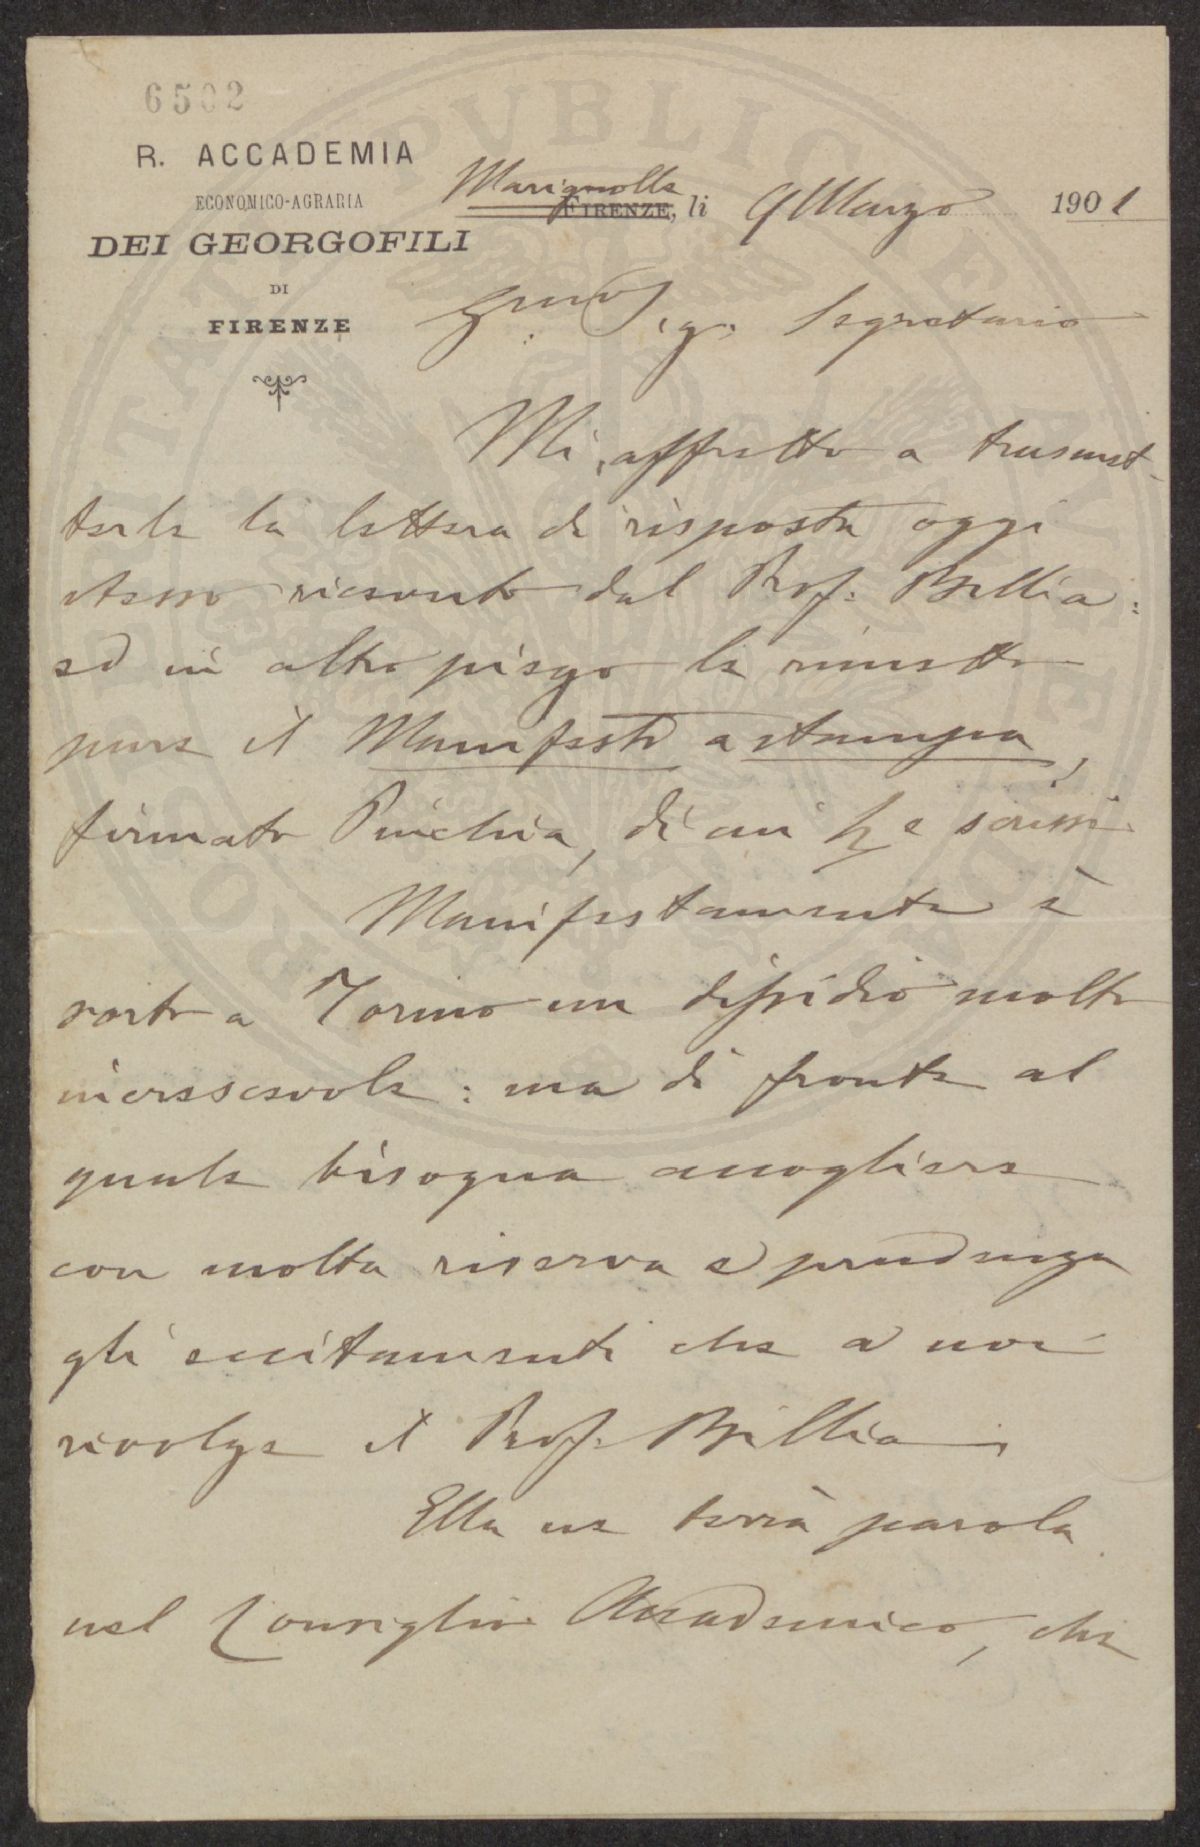 6502
R. ACCADEMIA
ECONOMICO-AGRARIA
DEI GEORGOFILI
DI
FIRENZE
Marignolle
FIRENZE, li 9 Marzo 1901
Sig. Segretario
Mi affretto a trasmet-
terle la lettera di risposta oggi
stesso ricevuto dal Prof. Billia:
ed in altro piego le rimetto
pure il Manifesto a stampa,
firmato Pinchia, di cui Le scrissi
Manifestamente è
sorto a Torino un dissidio molto
increscevole: ma di fronte al
quale bisogna accogliere
con molta riserva e prudenza
gli eccitamenti che a noi
rivolge il Prof. Billia
Ella ne terrà parola
nel Consiglio Accademico, che